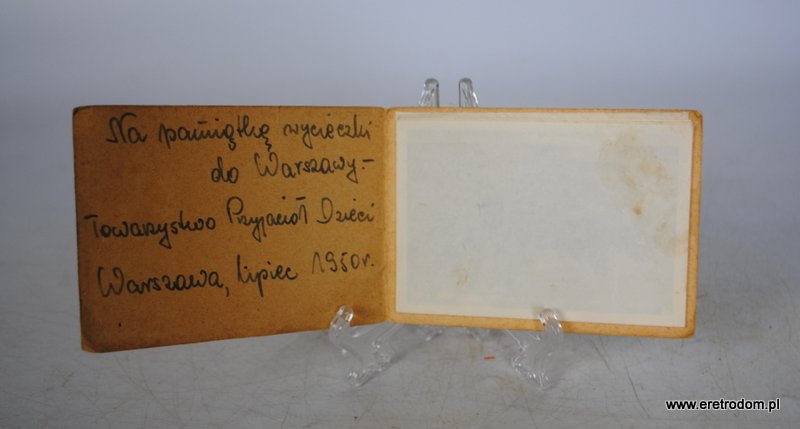 Na pamiątkę wycieczki
do Warszawy -
Towarzystwo Przyjaciół Dzieci
Warszawa, lipiec 1950r.
www.eretrodom.pl